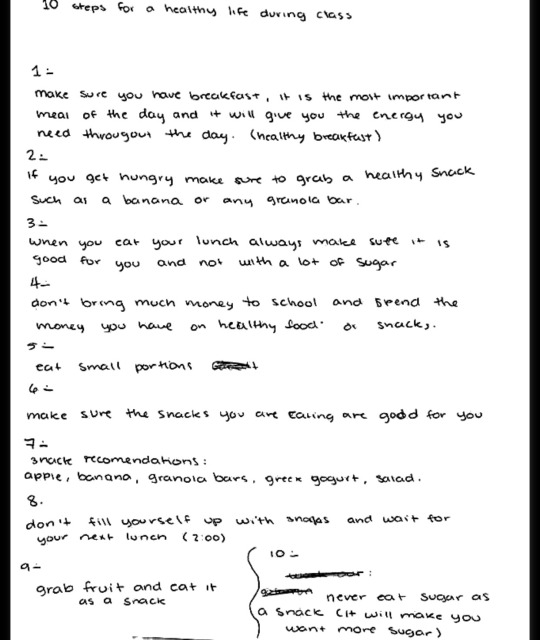 10 steps for a healthy life during class
1:-
make sure you have breakfast, it is the most important
meal of the day and it will give you the energy you
need througout the day. (healthy breakfast)
2:-
if you get hungry make sure to grab a healthy snack
such as a banana or any granola bar.
3:-
when you eat your lunch always make sure it is
good for you and not with a lot of sugar
4:-
don't bring much money to school and spend the
money you have on healthy food or snacks.
5:-
eat small portions
6:-
make sure the snacks you are eating are good for you
7:-
snack recomendations:
apple, banana, granola bars, greek yogurt, salad.
8.
don't fill yourself up with snaks and wait for
your next lunch (2:00)
9:-
grab fruit and eat it
as a snack
10:-
never eat sugar as
a snack (it will make you
want more sugar)